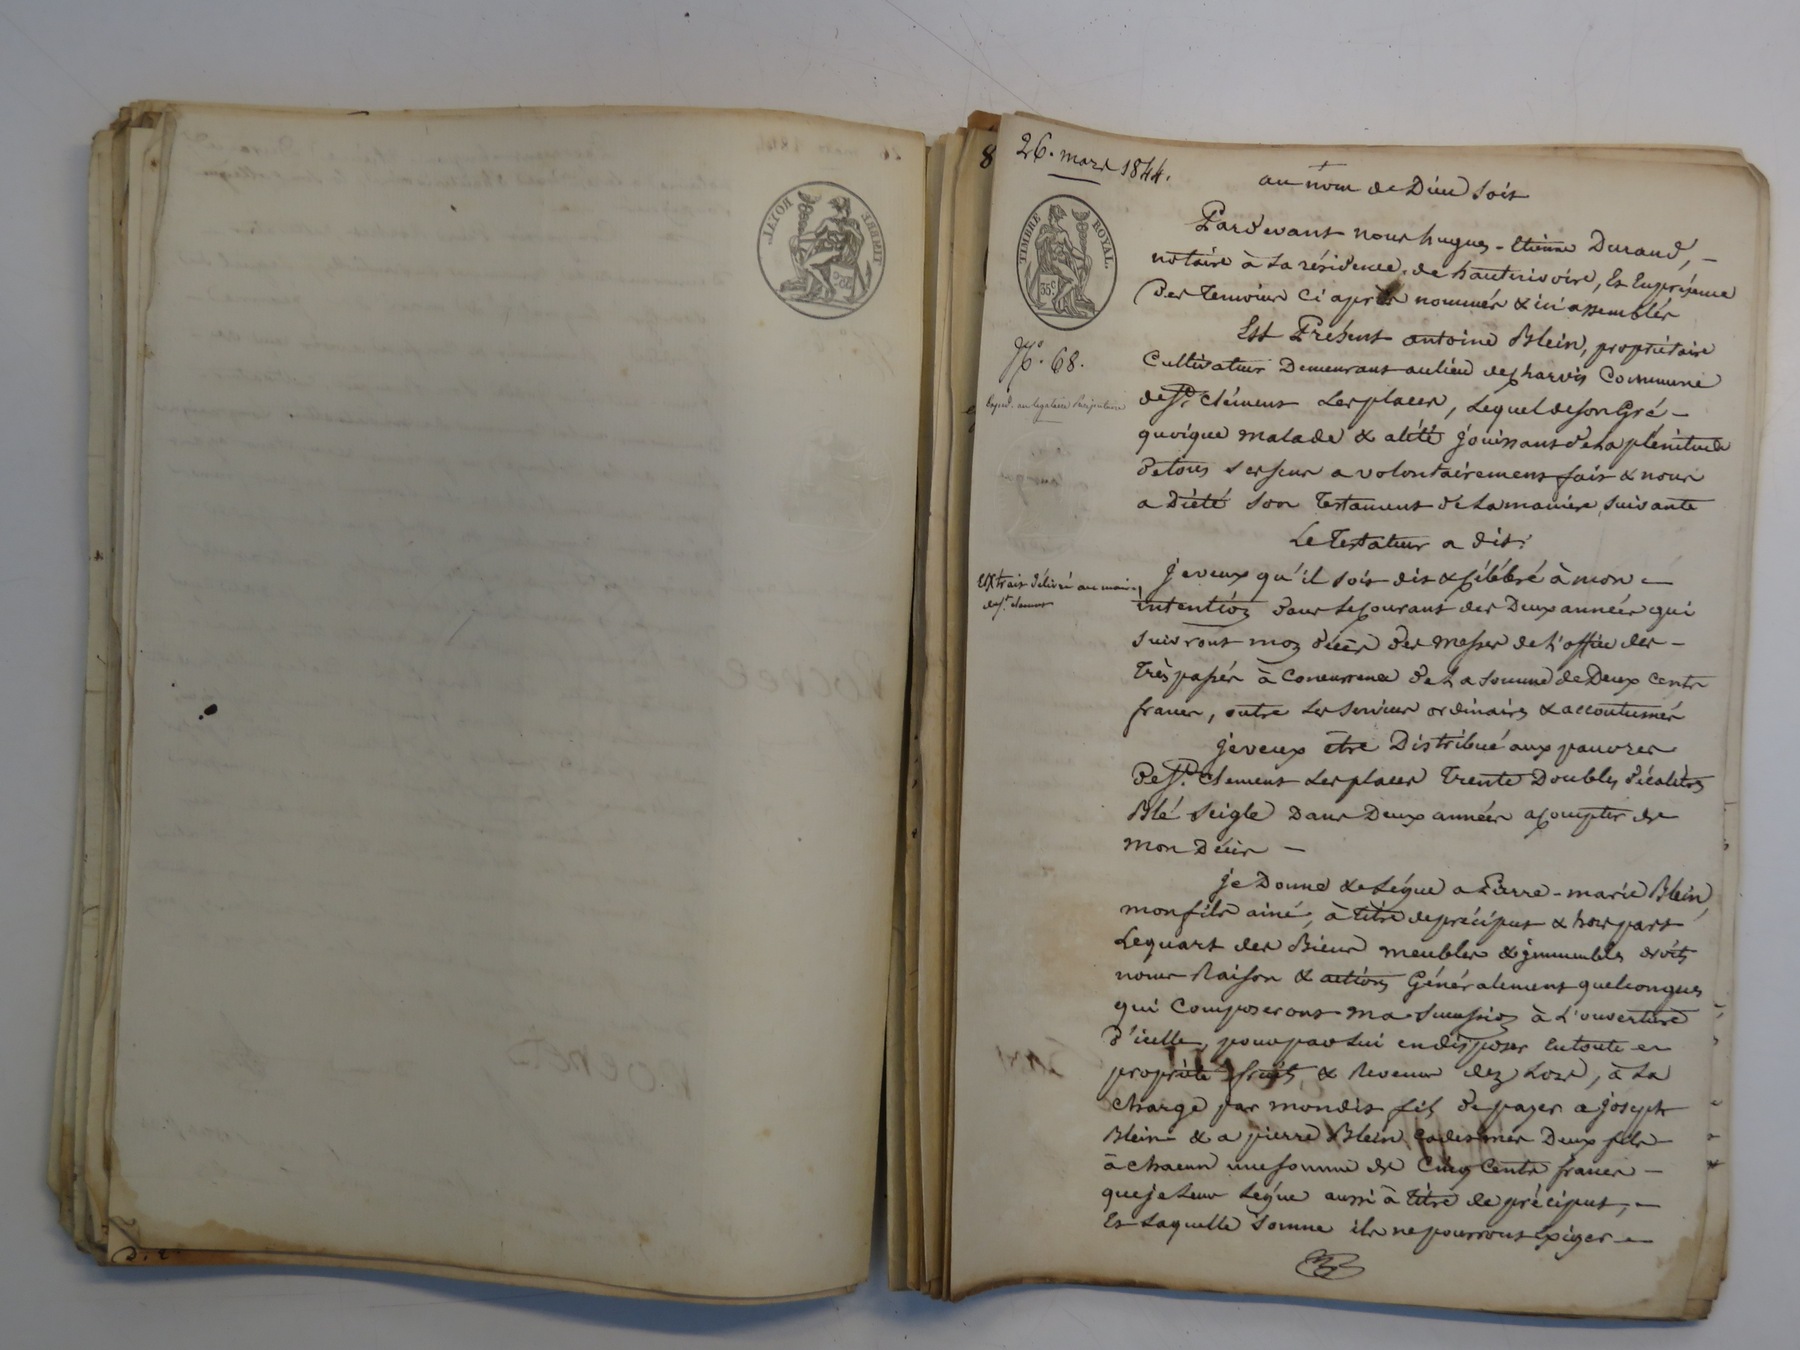 8
26. mars 1844.
TIMBRE ROYAL.
35c
No. 68.
Expéd. au légataire Précipuitaire
Extrait délivré au maire
de St. clément
au nom de Dieu soit
Pardevant nous hugues-Etienne Durand, -
notaire à la résidence de hauterivoire, Et En présence
des temoins ci après nommés & ici assemblés
Est Présent antoine Blein, propriétaire
Cultivateur Demeurant au lieu de charvis Commune
de St. Clément Les places, Lequel de son Gré -
quoique malade & alité jouissant de la plénitude
de tous ses sens a volontairement fait & nous
a Dicté son Testament de la manière suivante
Le Testateur a dit:
je veux qu'il soit dit & Célébré à mon -
intention dans le courant des Deux années qui
suivront mon décès des messes de l'office des -
Trèspassés à Concurrence de la somme de Deux Cents
francs, outre les services ordinaires & accoutumés
je veux être Distribué aux pauvres
de St. Clement Les places Trente Doubles décalitres
Blé seigle Dans Deux années a compter de
mon Décès -
je Donne & Légue a Pierre-marie Blein,
mon fils ainé, à titre de préciput & hors part
Le quart des Biens meubles & immeubles droits
noms Raison & actions Généralement quelconques
qui Composeront ma succession à L'ouverture
d'icelle, pour par lui en disposer En toute -
propriété fruits & Revenus dez Lors, à la
charge par mondit fils de payer a joseph
Blein & a pierre Blein cadet mes Deux fils -
à chacun une somme de Cinq Cents francs -
que je Leur Légue aussi à titre de préciput, -
Et Laquelle somme ils ne pourront Exiger -